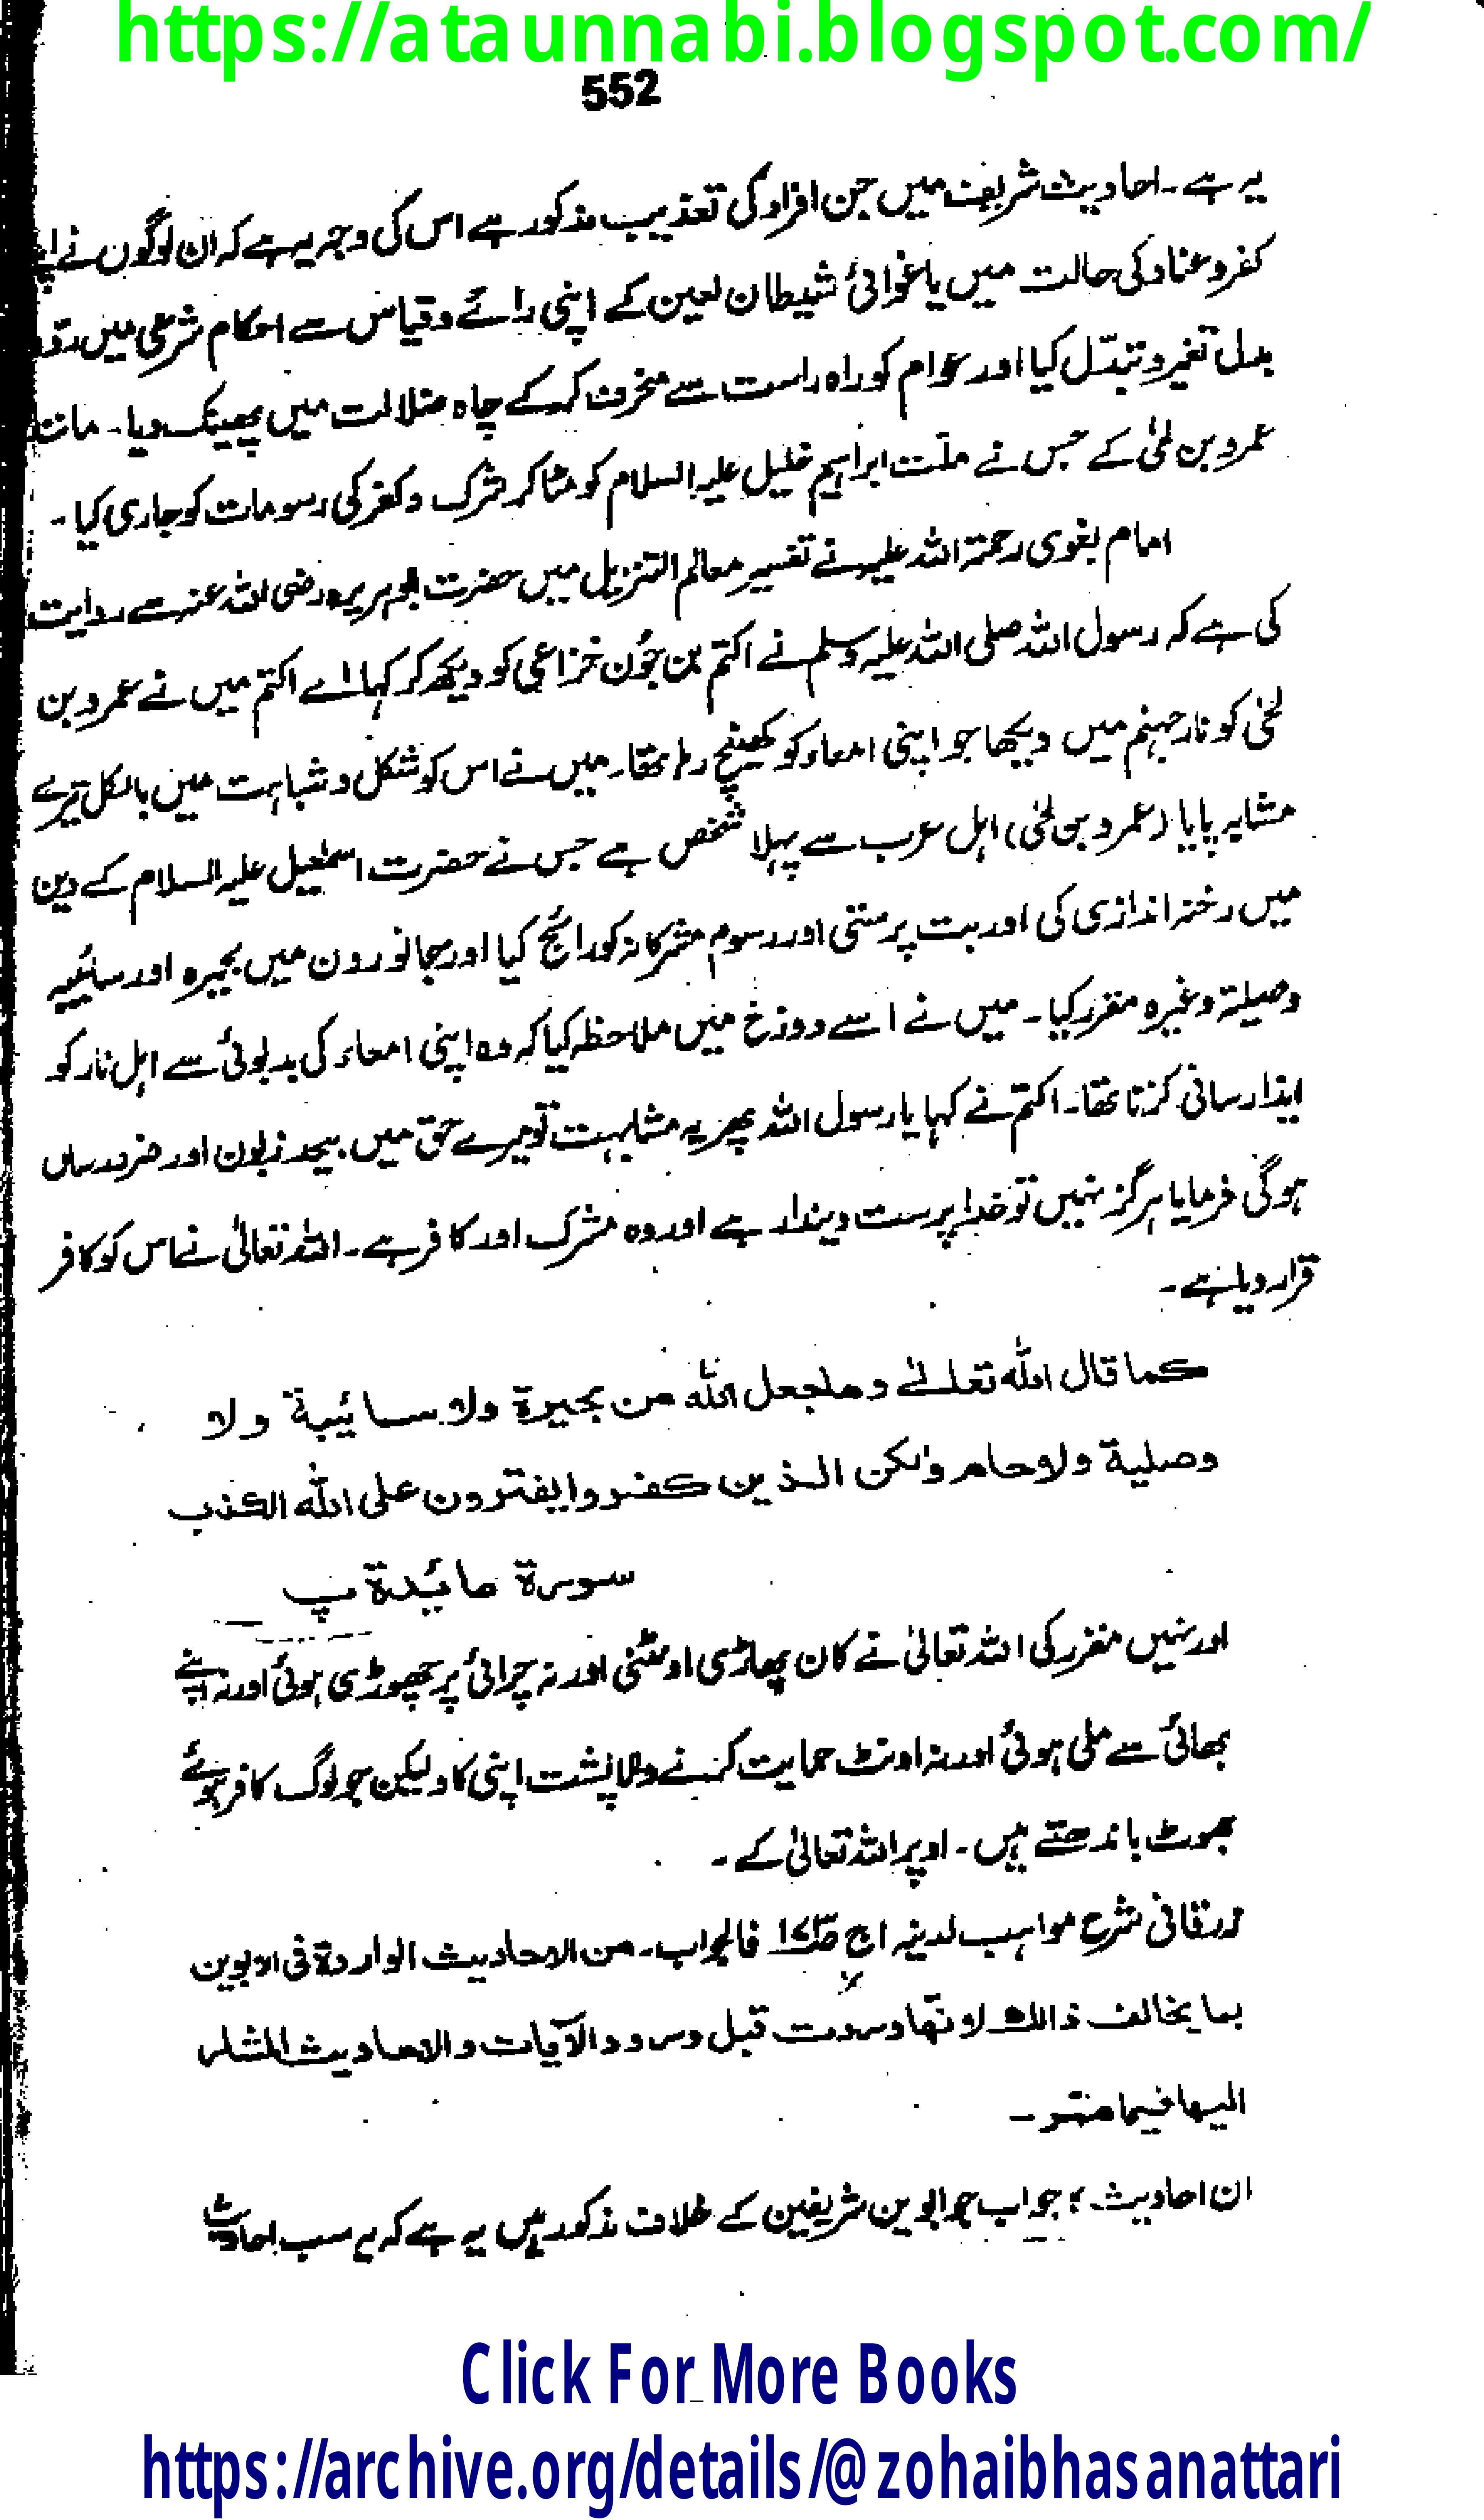 https://ataunnabi.blogspot.com/
552
یہ ہے ۔ احادیث شریف میں جن افراد کی تعذیب مذکور ہے اس کی وجہ یہ ہے کہ ان لوگوں نے اپنے
کفر و عناد کی حالت میں یا غوائے شیطان لعین کے اپنی رائے و قیاس سے احکام شرعی میں ردّ و
بدل تغیر و تبدّل کیا اور عوام کو راہ راست سے منحرف کر کے چاہ ضلالت میں پھینک دیا ۔ مانند
عمرو بن لحّی کے جس نے ملّت ابراہیم خلیل علیہ السلام کو مٹا کر شرک و کفر کی رسومات کو جاری کیا ۔
امام بغوی رحمۃ اللہ علیہ نے تفسیر معالم التنزیل میں حضرت ابو ہریرہ رضی اللہ عنہ سے روایت
کی ہے کہ رسول اللہ صلی اللہ علیہ وسلم نے اکتم بن جُون خزاعی کو دیکھ کر کہا اے اکتم میں نے عمرو بن
لحّی کو نار جہنم میں دیکھا جو اپنی امعاء کو کھینچ رہا تھا ۔ میں نے اس کو شکل و شباہت میں بالکل تیرے
مشابہ پایا (عمرو بن لحّی) اہل عرب سے پہلا شخص ہے جس نے حضرت اسمٰعیل علیہ السلام کے دین
میں رخنہ اندازی کی اور بت پرستی اور رسوم مشرکانہ کو رائج کیا اور جانوروں میں بحیرہ اور سائبیہ
وصیلۃ وغیرہ مقرر کیا ۔ میں نے اسے دوزخ میں ملاحظہ کیا کہ وہ اپنی امعاء کی بدبوئی سے اہل نار کو
ایذا رسانی کرتا تھا ۔ اکتم نے کہا یا رسول اللہ پھر یہ مشابہت تو میرے حق میں بیحد زبون اور ضرور ساں
ہوگی فرمایا ہرگز نہیں تو خدا پرست دیندار ہے اور وہ مشرک اور کافر ہے ۔ اللہ تعالیٰ نے اس کو کافر
قرار دیا ہے ۔
کما قال اللہ تعالیٰ وما جعل اللہ من بحیرۃ ولا سائیبۃ ولا
وصلیۃ ولا حام ولٰکن الذین کفروا یفترون علی اللہ الکذب
سورۃ مائیدۃ پ
اور نہیں مقرر کی اللہ تعالیٰ نے کان پھاڑی اونٹنی اور نہ چرائی پر چھوڑی ہوئی اور نہ اپنے
بھائی سے ملی ہوئی اور نہ اونٹ حمایت کرنے والا پشت اپنی کا ولیکن جو لوگ کافر ہوئے
جھوٹ باندھتے ہیں ۔ اوپر اللہ تعالیٰ کے ۔
زرقانی شرح مواہب لدینہ اج فالجواب ۔ من الاحادیث الواردۃ فی الابوین
بما یخالف ذالک لانّھا وردت قبل ورود الآیات والاحادیث المشار
الیھا فیما مّر ۔
ان احادیث ؛ جواب جو ابوین شریفین کے خلاف مذکور ہیں یہ ہے کہ یہ سب احادیث
Click For More Books
https://archive.org/details/@zohaibhasanattari